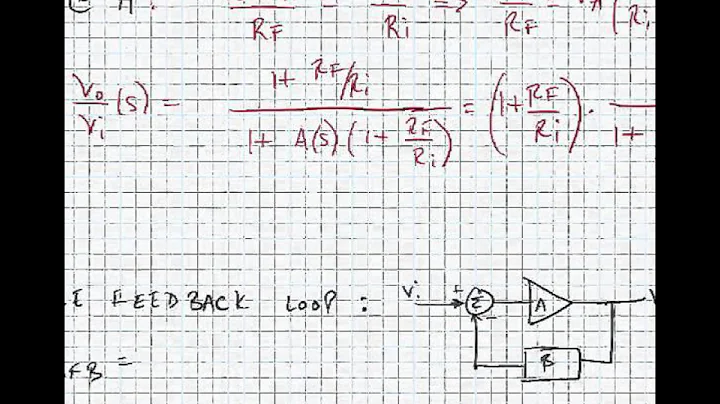 @ A : RF Ri => RF = A( Ri
Vo/Vi (s) = (1+ RF/Ri) / (1+ A(s) (1+ RF/Ri)) = (1+ RF/Ri) · 1+
FEEDBACK LOOP : Vi + Σ - A V
B
FB =